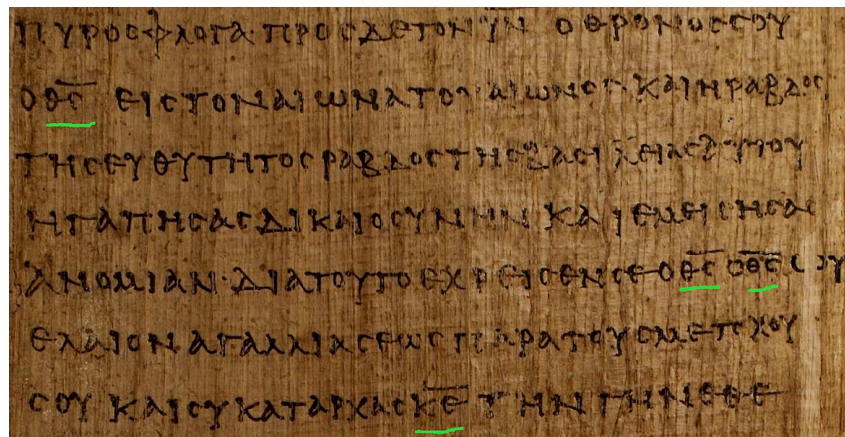 ΠΥΡΟΣ ΦΛΟΓΑ· ΠΡΟΣ ΔΕ ΤΟΝ Υ̅Ν̅ Ο ΘΡΟΝΟΣ ΣΟΥ
Ο Θ̅Σ̅ ΕΙΣ ΤΟΝ ΑΙΩΝΑ ΤΟΥ ΑΙΩΝΟΣ· ΚΑΙ Η ΡΑΒΔΟΣ
ΤΗΣ ΕΥΘΥΤΗΤΟΣ ΡΑΒΔΟΣ ΤΗΣ ΒΑΣΙΛΕΙΑΣ ΑΥΤΟΥ
ΗΓΑΠΗΣΑΣ ΔΙΚΑΙΟΣΥΝΗΝ ΚΑΙ ΕΜΕΙΣΗΣΑΣ
ΑΝΟΜΙΑΝ· ΔΙΑ ΤΟΥΤΟ ΕΧΡΕΙΣΕΝ ΣΕ Ο Θ̅Σ̅ Ο Θ̅Σ̅ ΣΟΥ
ΕΛΑΙΟΝ ΑΓΑΛΛΙΑΣΕΩΣ ΠΑΡΑ ΤΟΥΣ ΜΕΤΟΧΟΥ
ΣΟΥ ΚΑΙ ΣΥ ΚΑΤΑΡΧΑΣ Κ̅Ε̅ ΤΗΝ ΓΗΝ ΕΘΕ